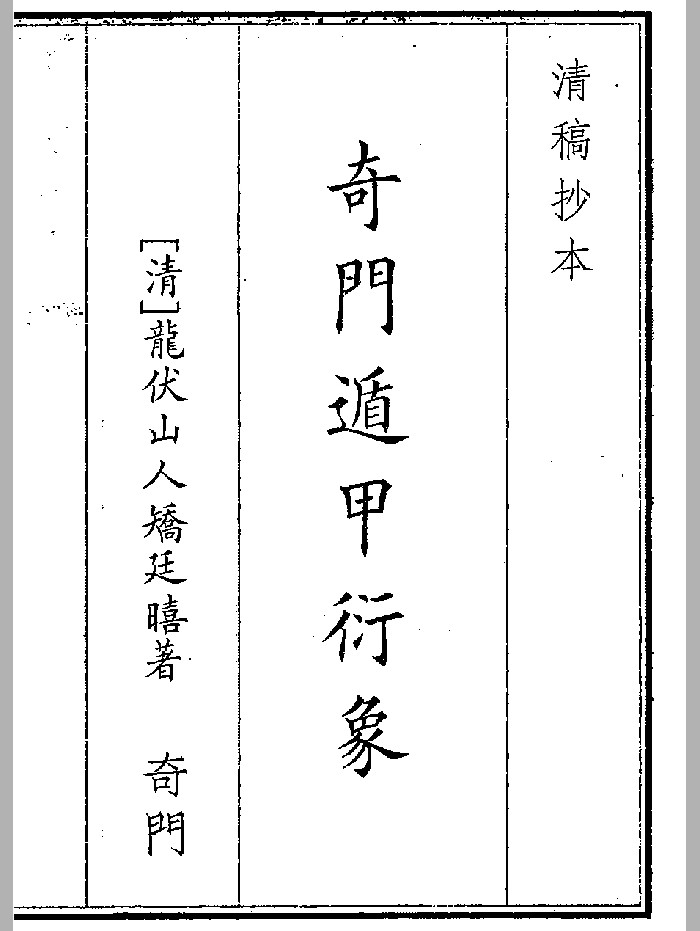 清稿抄本
奇門遁甲衍象
[清]龍伏山人矯廷暿著 奇門